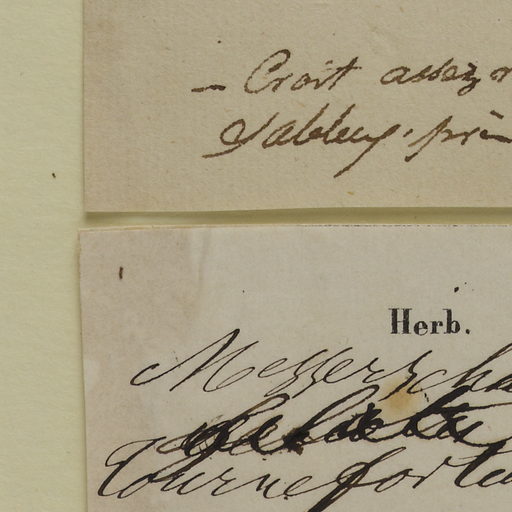 — Croit assez
Sables, prin
Herb.
Messerscha
Tournefortu